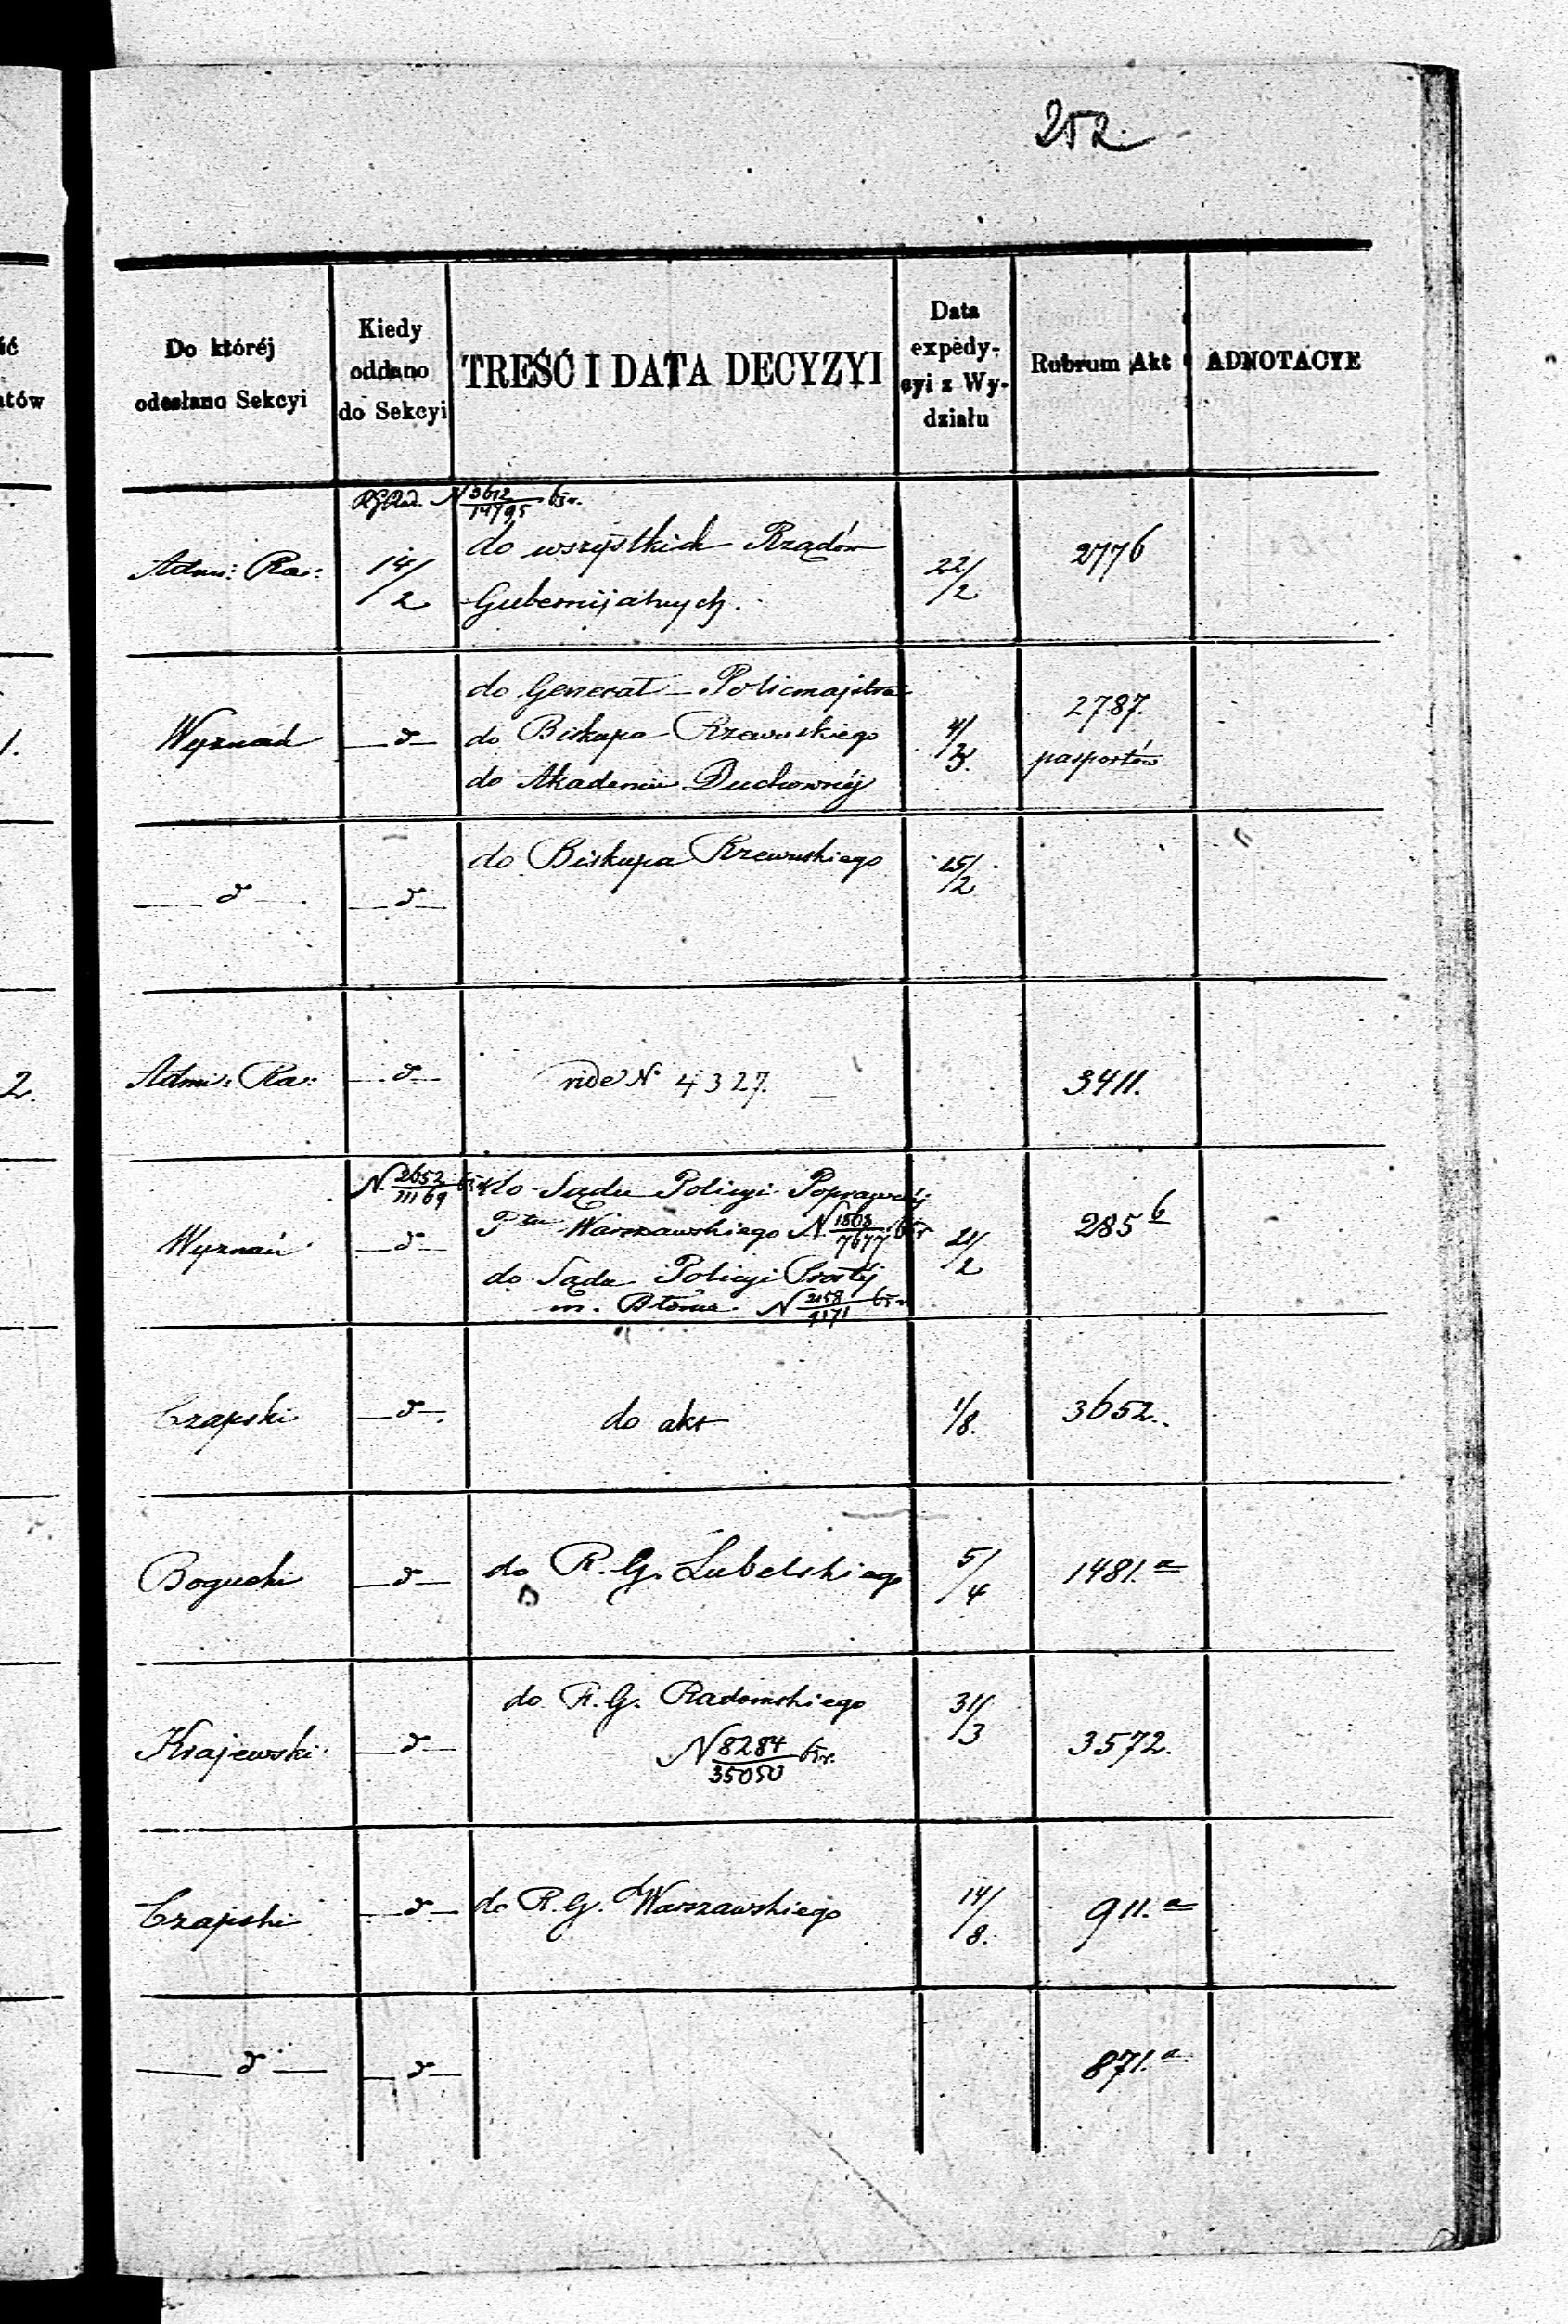 252.
Do któréj
odesłano Sekcyi
Kiedy
oddano
do Sekcyi
TREŚĆ I DATA DECYZYI
Data
expedy-
cyi z Wy-
działu
Rubrum Akt
ADNOTACYE
RGRad. N 3612/14795 65r.
Adm: Ra:
14/2
do wszystkich Rządów
Gubernijalnych.
22/2
2776
Wyznań
—d—
do Generał-Policmajstra
do Biskupa Rzewuskiego
do Akademii Duchownéj
4/3.
2787.
pasportów
—d—
—d—
do Biskupa Rzewuskiego
15/2
Admi: Ra:
—d—
vide N° 4327.
3411.
N 2652/11169 65r
Wyznań
—d—
do Sądu Policyi Poprawczéj
Ptu Warszawskiego N 1808/7677 65r
do Sądu Policyi Prostéj
m. Błonia. N 2158/9171 65r
21/2
285 b
Czapski
—d—
do akt
1/8.
3652.
Bogucki
—d—
do R. G. Lubelskiego
5/4
1481. a
Krajewski
—d—
do R. G. Radomskiego
N 8284/35050 65r.
31/3
3572.
Czapski
—d—
do R. G. Warszawskiego
14/8.
911. a
—d—
—d—
871. a
ić
atów
1.
2.